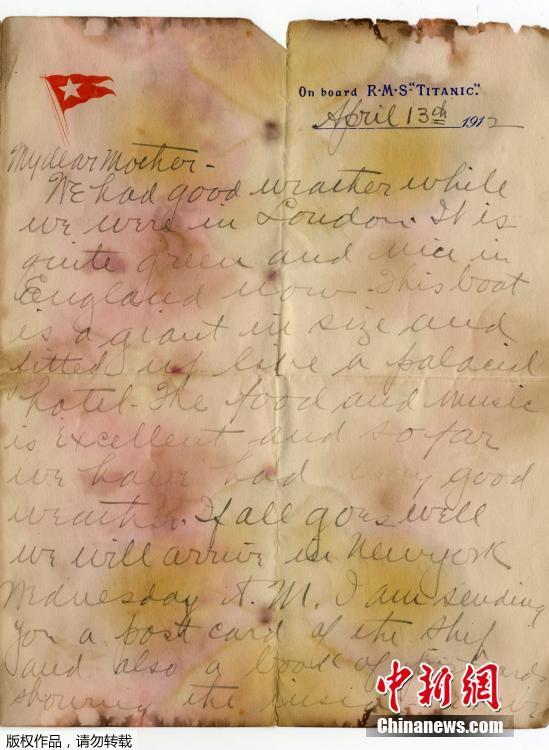 On board R·M·S "TITANIC".
April 13th 1912
My dear Mother-
We had good weather while
we were in London. It is
quite green and nice in
England now. This boat
is a giant in size and
fitted up like a palacial
hotel. The food and music
is excellent and so far
we have had very good
weather. If all goes well
we will arrive in New york
Wednesday A. M. I am sending
you a post card of the ship
and also a book of
showing the
中新网
Chinanews.com
版权作品，请勿转载